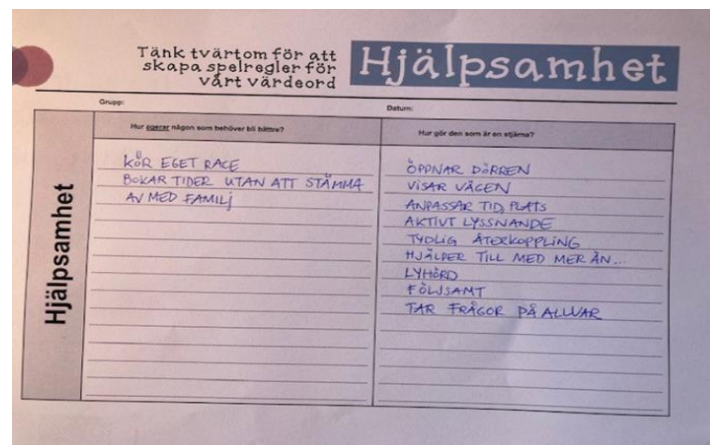 Tänk tvärtom för att
skapa spelregler för
vårt värdeord
Hjälpsamhet
Grupp:
Datum:
Hur agerar någon som behöver bli bättre?
Hur gör den som är en stjärna?
Hjälpsamhet
KÖR EGET RACE
BOKAR TIDER UTAN ATT STÄMMA
AV MED FAMILJ
ÖPPNAR DÖRREN
VISAR VÄGEN
ANPASSAR TID, PLATS
AKTIVT LYSSNANDE
TYDLIG ÅTERKOPPLING
HJÄLPER TILL MED MER ÄN...
LYHÖRD
FÖLJSAMT
TAR FRÅGOR PÅ ALLVAR